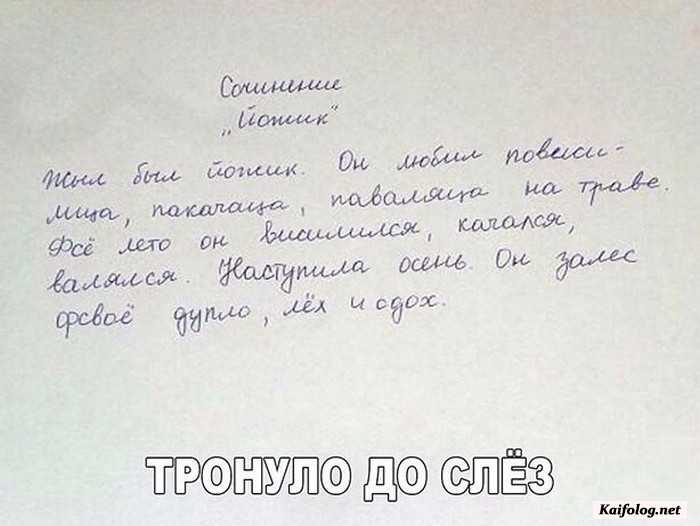 Сочинение
„Йожик"
Жыл был йожик. Он любил повиси-
лица, пакачаца, паваляца на траве.
Фсё лето он висилился, качался,
валялся. Наступила осень. Он залес
фсваё дупло, лёх и сдох.
ТРОНУЛО ДО СЛЁЗ
Kaifolog.net